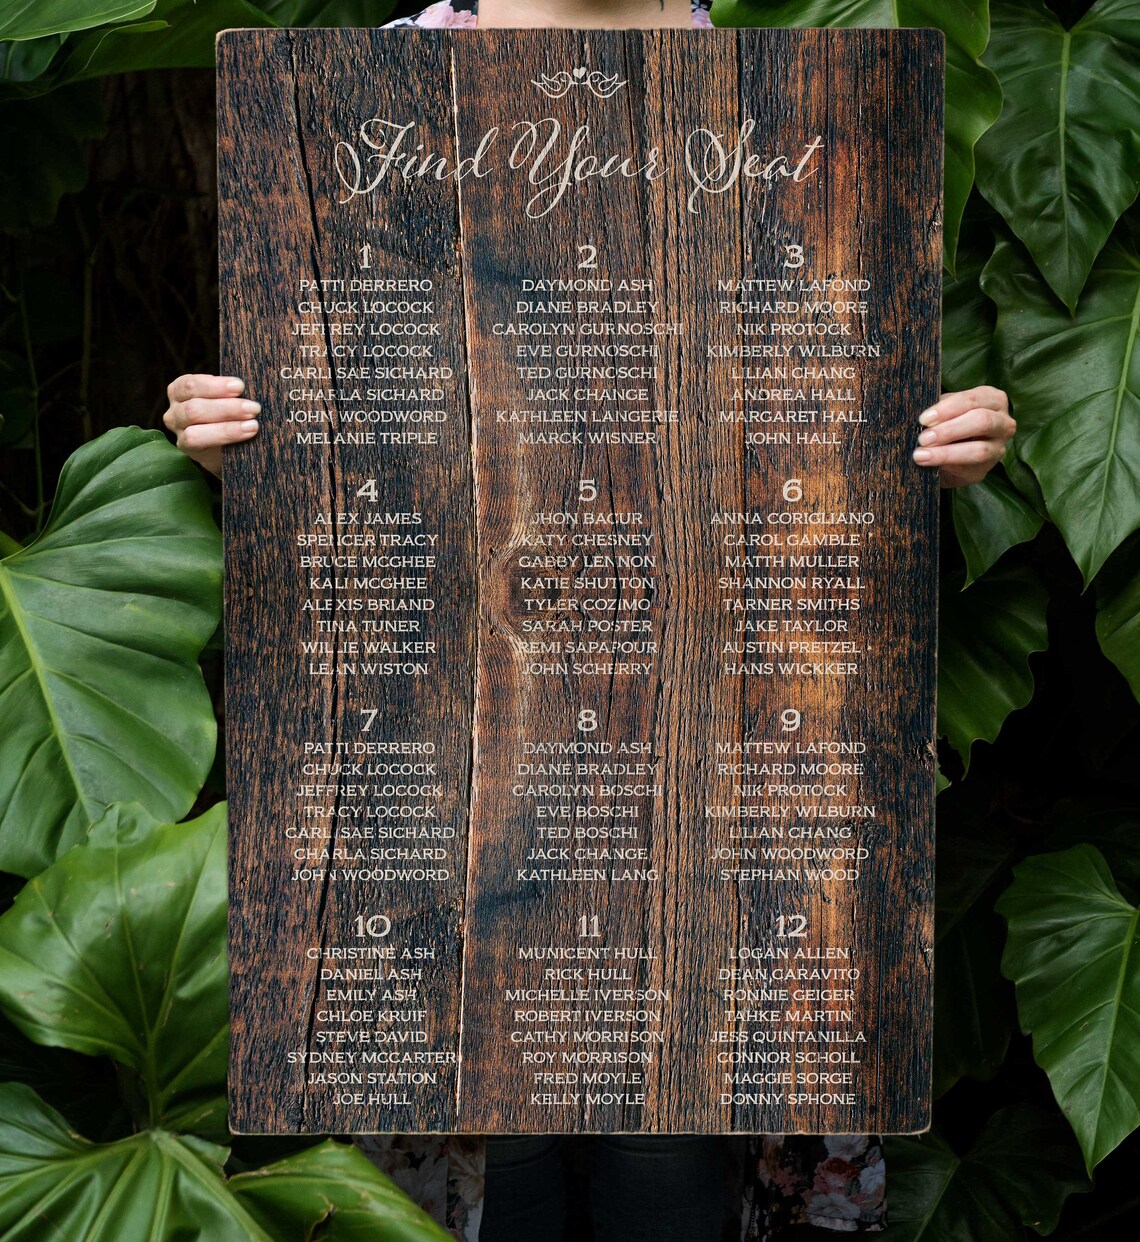 Find Your Seat
1
PATTI DERRERO
CHUCK LOCOCK
JEFFREY LOCOCK
TRACY LOCOCK
CARLI SAE SICHARD
CHARLA SICHARD
JOHN WOODWORD
MELANIE TRIPLE
2
DAYMOND ASH
DIANE BRADLEY
CAROLYN GURNOSCHI
EVE GURNOSCHI
TED GURNOSCHI
JACK CHANGE
KATHLEEN LANGERIE
MARCK WISNER
3
MATTEW LAFOND
RICHARD MOORE
NIK PROTOCK
KIMBERLY WILBURN
LILIAN CHANG
ANDREA HALL
MARGARET HALL
JOHN HALL
4
ALEX JAMES
SPENCER TRACY
BRUCE MCGHEE
KALI MCGHEE
ALEXIS BRIAND
TINA TUNER
WILLIE WALKER
LEAN WISTON
5
JHON BACUR
KATY CHESNEY
GABBY LENNON
KATIE SHUTTON
TYLER COZIMO
SARAH POSTER
REMI SAPAPOUR
JOHN SCHERRY
6
ANNA CORIGLIANO
CAROL GAMBLE
MATTH MULLER
SHANNON RYALL
TARNER SMITHS
JAKE TAYLOR
AUSTIN PRETZEL
HANS WICKKER
7
PATTI DERRERO
CHUCK LOCOCK
JEFFREY LOCOCK
TRACY LOCOCK
CARLI SAE SICHARD
CHARLA SICHARD
JOHN WOODWORD
8
DAYMOND ASH
DIANE BRADLEY
CAROLYN BOSCHI
EVE BOSCHI
TED BOSCHI
JACK CHANGE
KATHLEEN LANG
9
MATTEW LAFOND
RICHARD MOORE
NIK PROTOCK
KIMBERLY WILBURN
LILIAN CHANG
JOHN WOODWORD
STEPHAN WOOD
10
CHRISTINE ASH
DANIEL ASH
EMILY ASH
CHLOE KRUIF
STEVE DAVID
SYDNEY MCCARTER
JASON STATION
JOE HULL
11
MUNICENT HULL
RICK HULL
MICHELLE IVERSON
ROBERT IVERSON
CATHY MORRISON
ROY MORRISON
FRED MOYLE
KELLY MOYLE
12
LOGAN ALLEN
DEAN GARAVITO
RONNIE GEIGER
TAHKE MARTIN
JESS QUINTANILLA
CONNOR SCHOLL
MAGGIE SORGE
DONNY SPHONE